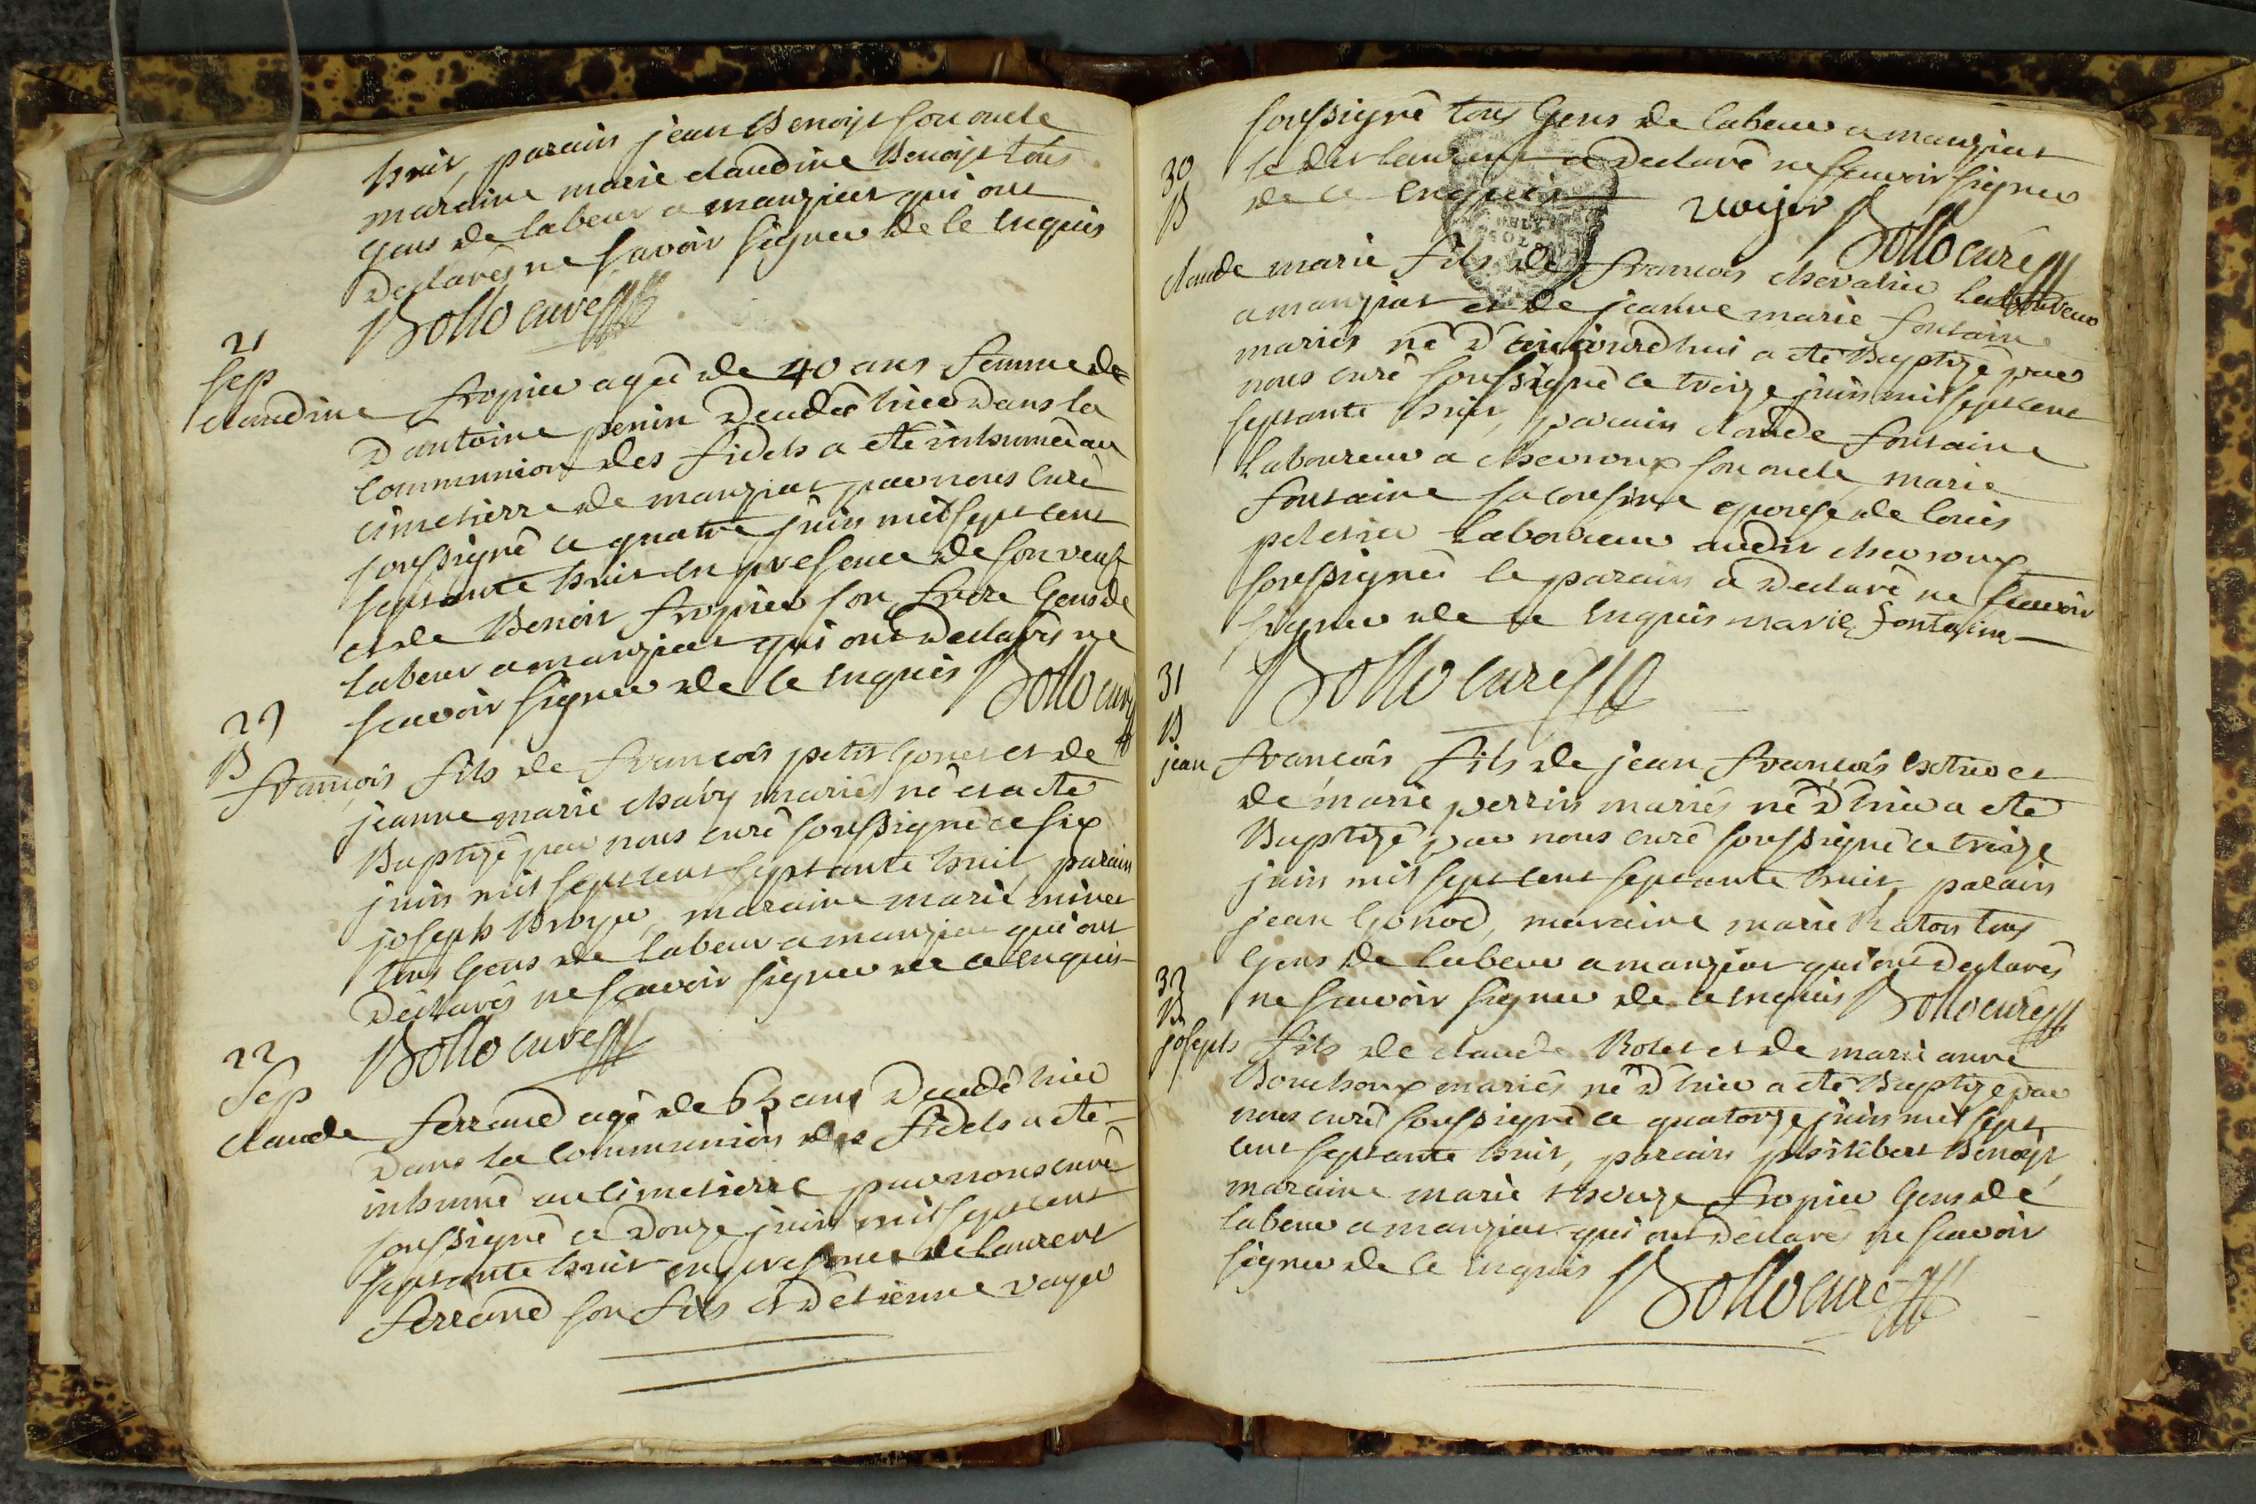 huit, parain jean Benoist son oncle
maraine marie claudine Benoist tous
gens de labeur a manziat qui ont
declarés ne savoir signer de ce enquis
Bollo curé
21
sep
claudine fropier agée de 40 ans femme de
d'antoine penin decedée hier dans la
communion des fidels a eté inhumée au
cimetierre de manziat par nous curé
soussigné ce quatre juin mil sept cent
septante huit en presence de son veuf
et de Benoit fropier son frere gens de
labeur a manziat qui ont declarés ne
scavoir signer de ce enquis Bollo curé
29
B
francois fils de francois petit gonet et de
jeanne marie chavy mariés né et a eté
Baptizé par nous curé soussigné ce six
juin mil sept cent septante huit, parain
joseph Broyer, maraine marie minet
tous gens de labeur a manziat qui ont
declarés ne scavoir signer de ce enquis
Bollo curé
22
Sep
claude ferrand agé de 63 ans decedé hier
dans la communion des fidels a eté
inhumé au cimetierre par nous curé
soussigné ce douze juin mil sept cent
septante huit en presence de laurent
ferrand son fils et d'etienne voyer
soussigné tous gens de labeur a manziat
le dit laurent a declaré ne scavoir signer
de ce enquis voyer Bollo curé
30
B
claude marie fils de francois chevalier laboureur
a manziat et de jeanne marie fontaine
mariés né d'aujourdhui a eté Baptizé par
nous curé soussigné ce treize juin mil sept cent
septante huit, parain claude fontaine
laboureur a chevroux son oncle, marie
fontaine sa cousine epouse de louis
peletier laboureur audit chevroux
soussignée le parain a declaré ne scavoir
signer de ce enquis marie fontaine
Bollo curé
31
B
jean francois fils de jean francois et
de marie perrin mariés né d'hier a eté
Baptizé par nous curé soussigné ce treize
juin mil sept cent septante huit, parain
jean gonod, maraine marie Raton tous
gens de labeur a manziat qui ont declarés
ne scavoir signer de ce enquis Bollo curé
32
B
joseph fils de claude Rolet et de marie anne
Bouchoux mariés né d'hier a eté Baptizé par
nous curé soussigné ce quatorze juin mil sept
cent septante huit, parain philibert Benoist,
maraine marie therese fropier gens de
labeur a manziat qui ont declarés ne scavoir
signer de ce enquis Bollo curé